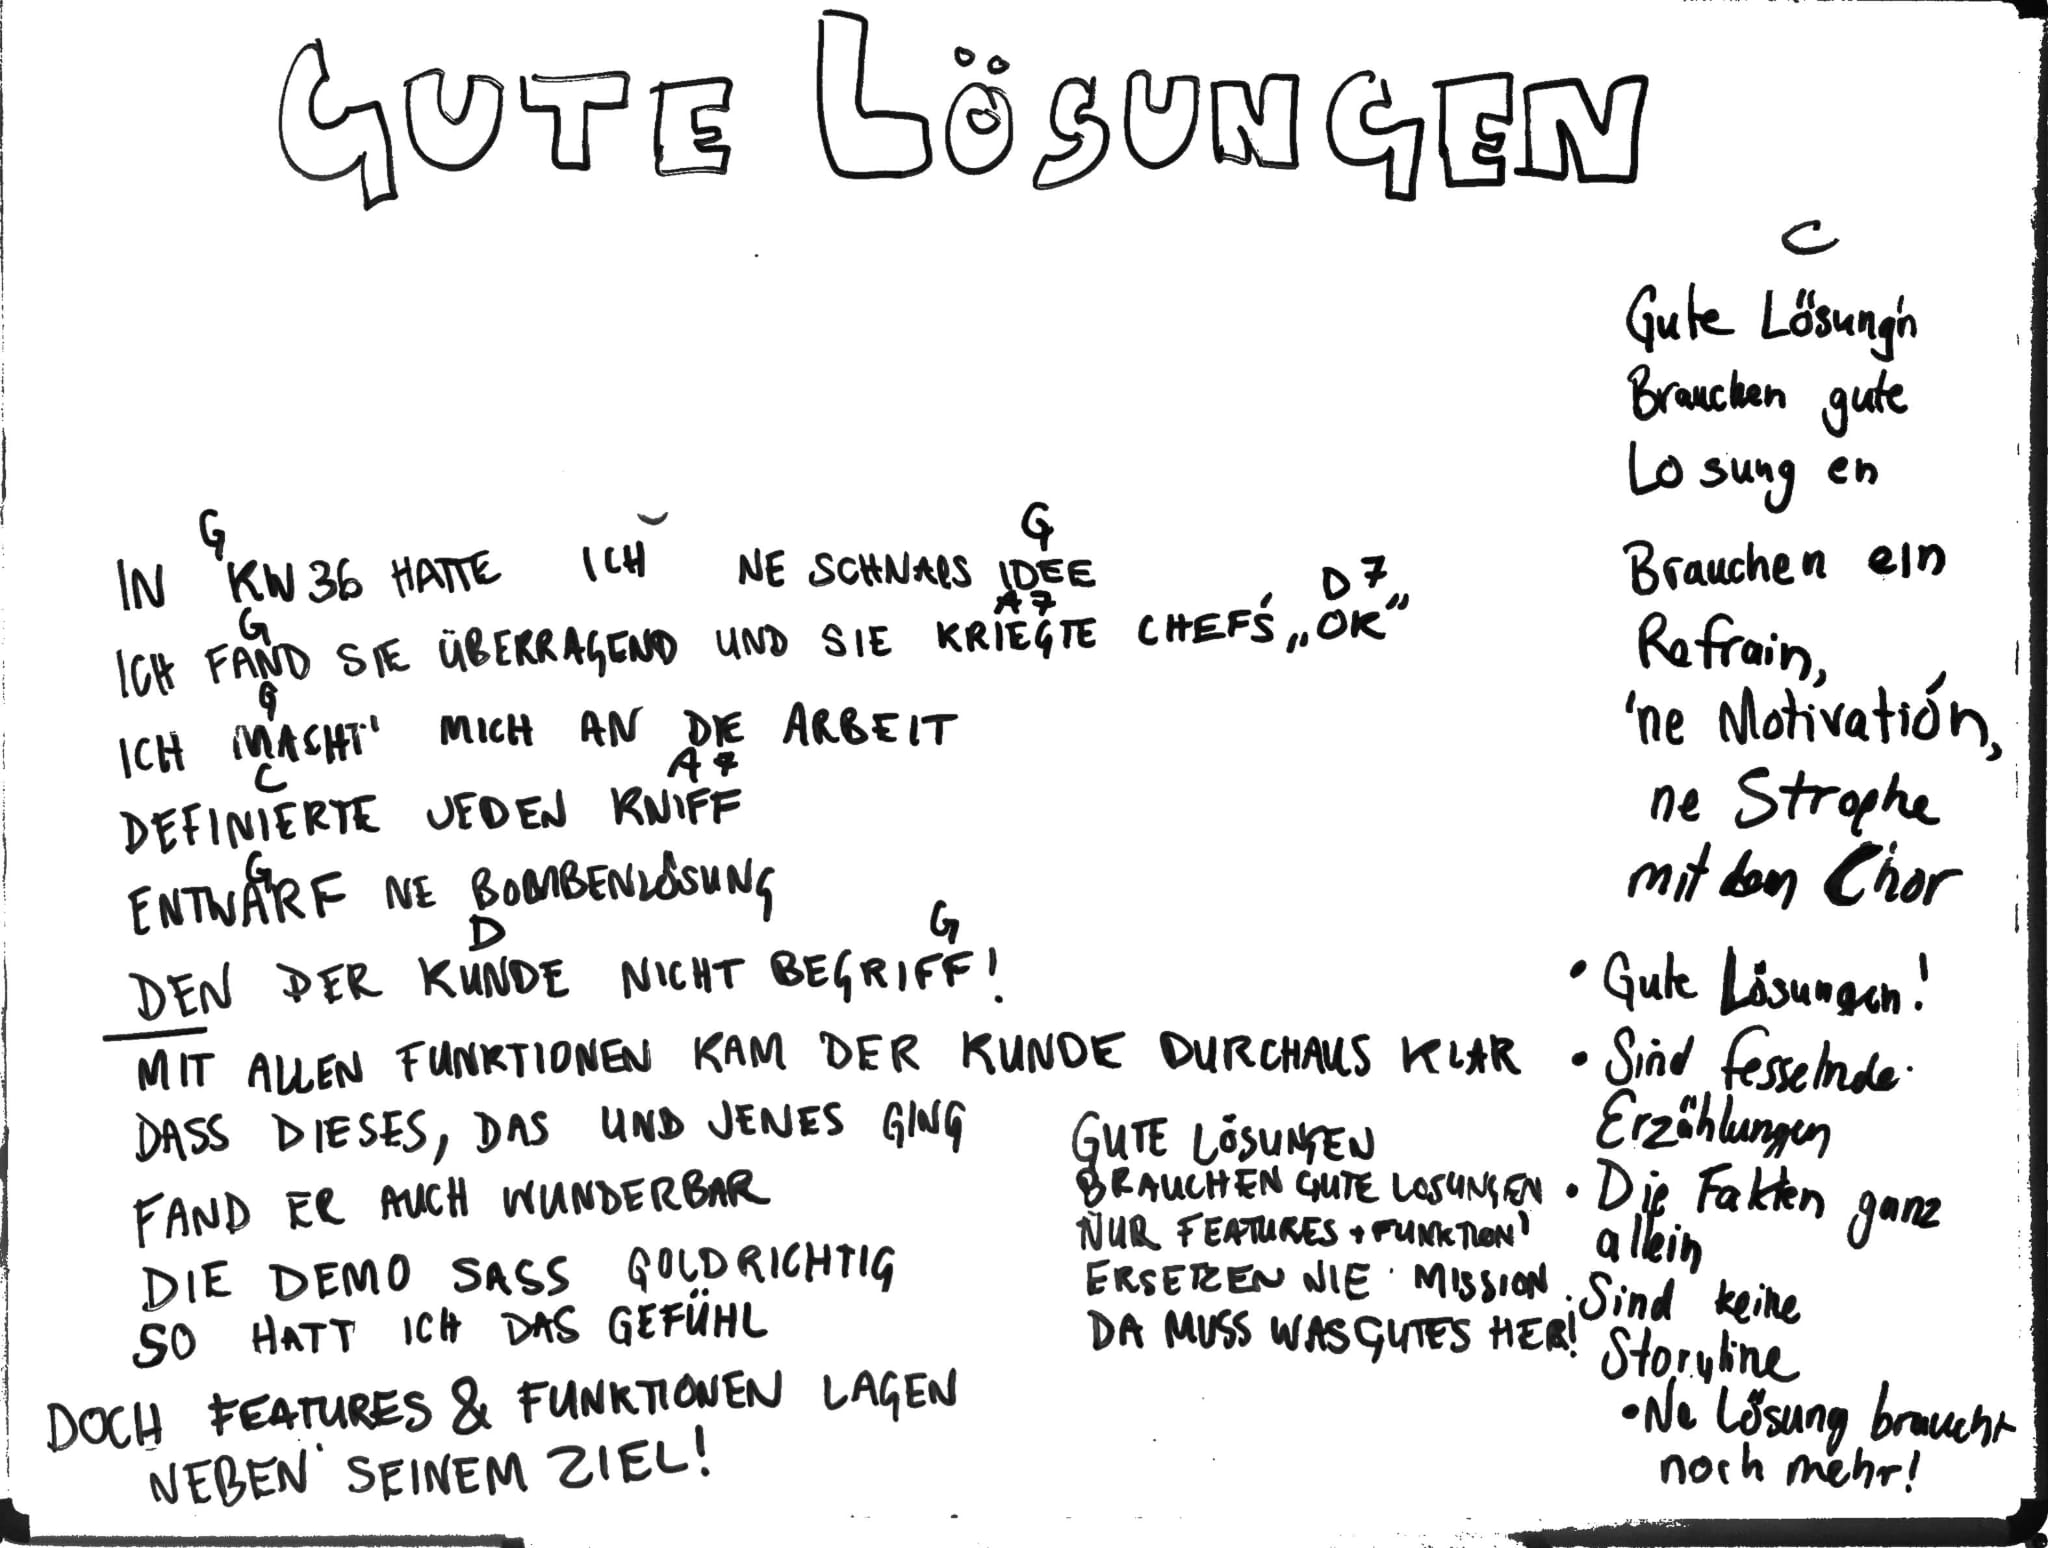 GUTE LÖSUNGEN
G G
IN KW 36 HATTE ICH NE SCHNAPS IDEE
G A7 D7
ICH FAND SIE ÜBERRAGEND UND SIE KRIEGTE CHEF'S „OK"
G
ICH MACHT' MICH AN DIE ARBEIT
C A7
DEFINIERTE JEDEN KNIFF
G
ENTWARF NE BOMBENLÖSUNG
D G
DEN DER KUNDE NICHT BEGRIFF!
MIT ALLEN FUNKTIONEN KAM DER KUNDE DURCHAUS KLAR
DASS DIESES, DAS UND JENES GING
FAND ER AUCH WUNDERBAR
DIE DEMO SASS GOLDRICHTIG
SO HATT ICH DAS GEFÜHL
DOCH FEATURES & FUNKTIONEN LAGEN
NEBEN SEINEM ZIEL!
GUTE LÖSUNGEN
BRAUCHEN GUTE LOSUNGEN
NUR FEATURES + FUNKTION'
ERSETZEN NIE MISSION
DA MUSS WAS GUTES HER!
C
Gute Lösung'n
Brauchen gute
Lo sung en
Brauchen ein
Refrain,
'ne Motivatión,
ne Strophe
mit dem Chor
• Gute Lösungen!
• Sind fesselnde
Erzählungen
• Die Fakten ganz
allein
• Sind keine
Storyline
• Ne Lösung braucht
noch mehr!